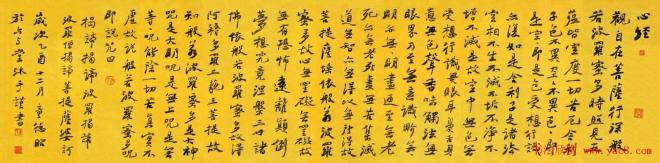 心經
觀自在菩薩行深般
若波羅蜜多時照見
五蘊皆空度一切苦厄舍利
子色不異空空不異色
色即是空空即是色受想行識
亦復如是舍利子是諸法
空相不生不滅不垢不淨不
增不減是故空中無色無
受想行識無眼耳鼻舌身意
無色聲香味觸法無
眼界乃至無意識界無
無明亦無無明盡乃至無老
死亦無老死盡無苦集滅
道無智亦無得以無所得
故菩提薩埵依般若波羅
蜜多故心無罣礙無罣礙故
無有恐怖遠離顛倒
夢想究竟涅槃三世諸
佛依般若波羅蜜多故得
阿耨多羅三藐三菩提故
知般若波羅蜜多是大神
咒是大明咒是無上咒是無等
等咒能除一切苦真實不
虛故說般若波羅蜜多咒
即說咒曰
揭諦揭諦波羅揭諦
波羅僧揭諦菩提薩婆訶
歲次乙酉十二月